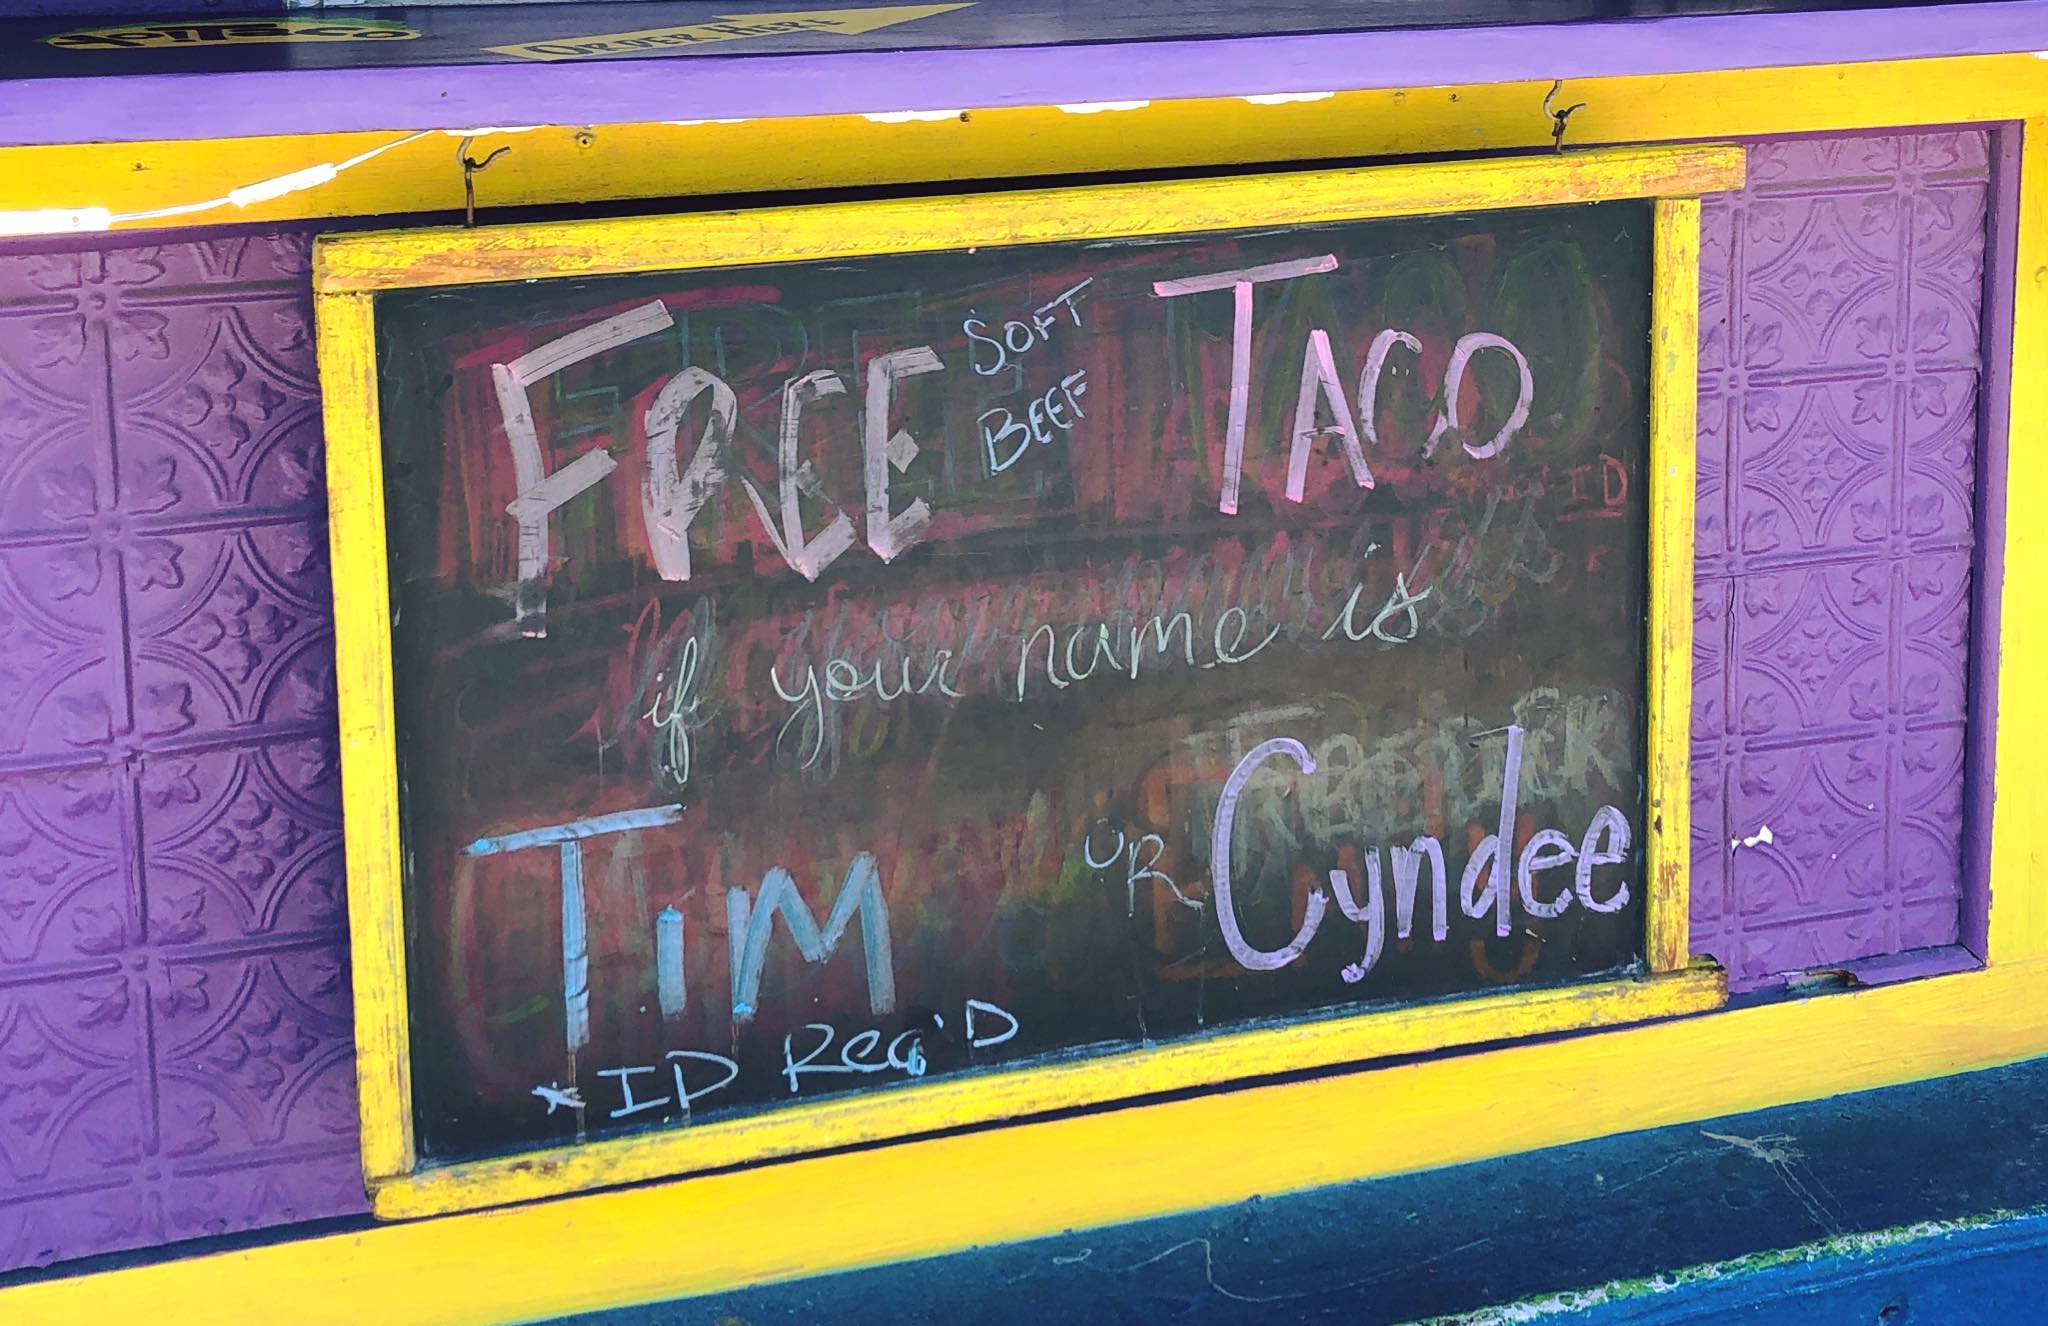 ORDER HERE
FREE SOFT BEEF TACO
if your name is
TIM OR Cyndee
* ID REQ'D